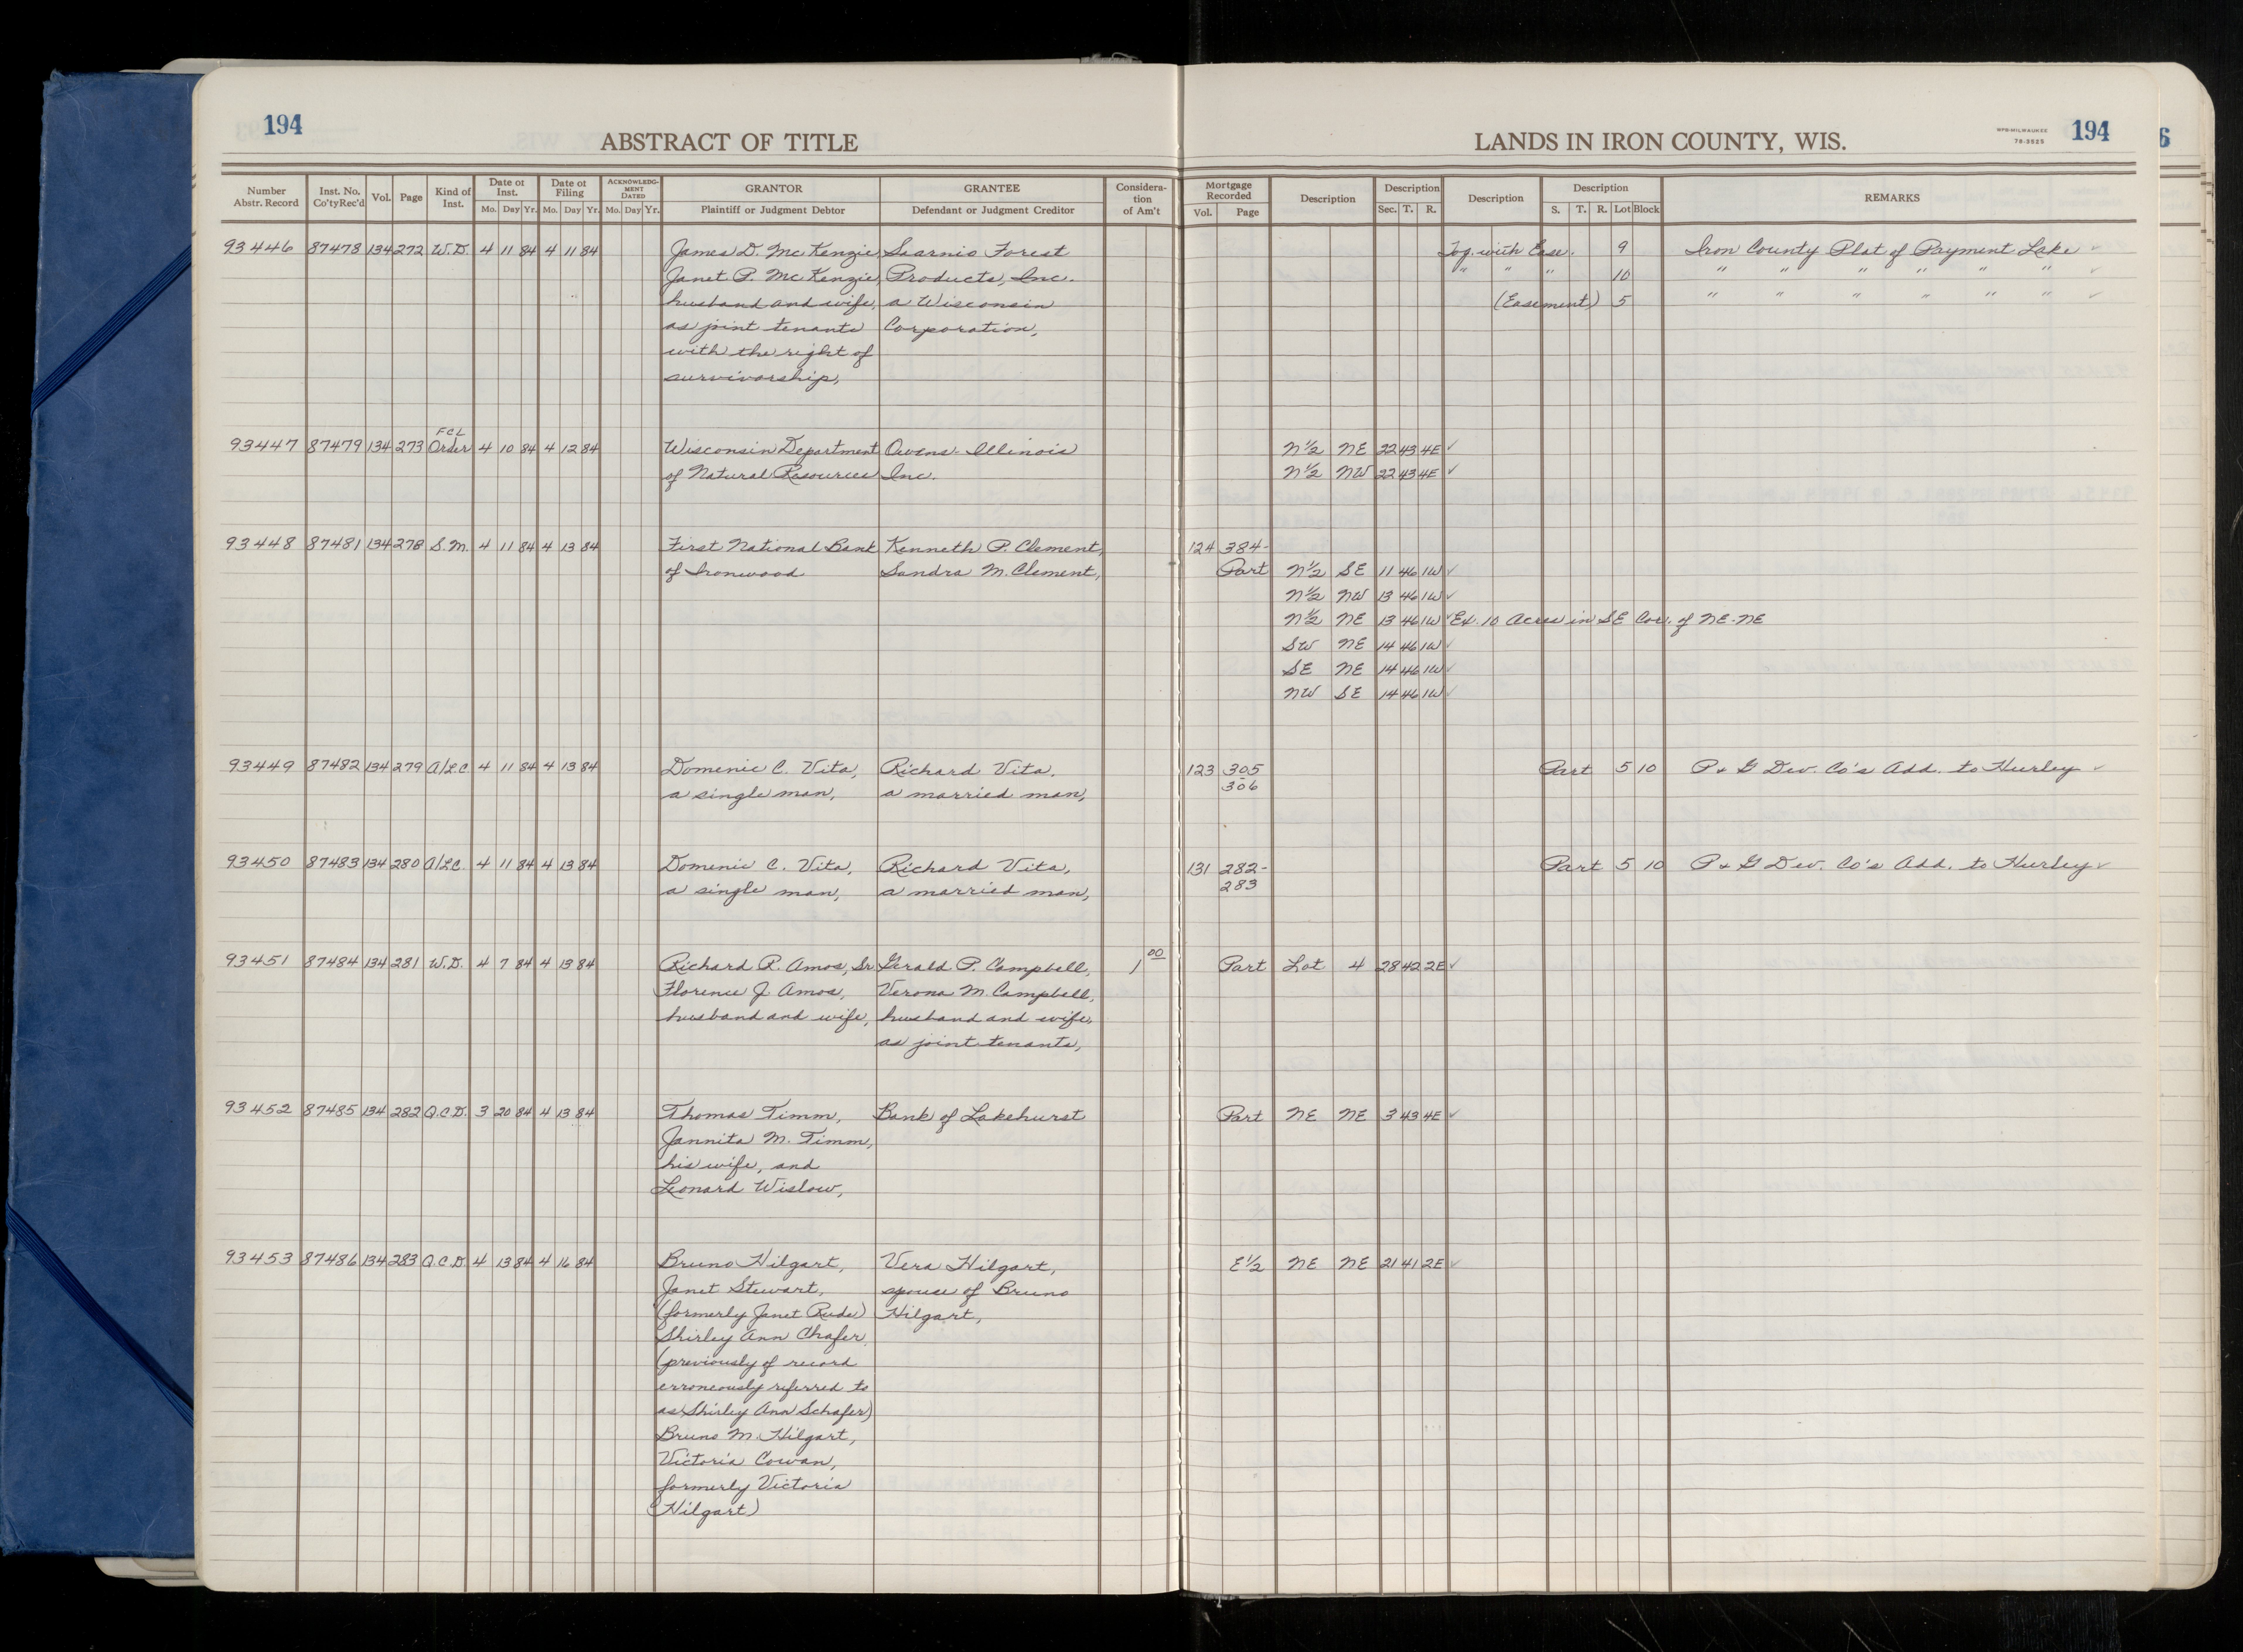 194
ABSTRACT OF TITLE
LANDS IN IRON COUNTY, WIS.
WPG-MILWAUKEE
78-3525
194
6
Number Abstr. Record | Inst. No. Co'ty Rec'd | Vol. | Page | Kind of Inst. | Date of Inst. Mo. Day Yr. | Date of Filing Mo. Day Yr. | ACKNOWLEDGMENT DATED Mo. Day Yr. | GRANTOR Plaintiff or Judgment Debtor | GRANTEE Defendant or Judgment Creditor | Consideration of Am't | Mortgage Recorded Vol. Page | Description | Description Sec. T. R. | Description | Description S. T. R. Lot Block | REMARKS
93446 87478 134 272 W.D. 4 11 84 4 11 84 James D. McKenzie, Saarnio Forest Tog. with Ease. 9 Iron County Plat of Payment Lake ✓
Janet P. McKenzie, Products, Inc. " " " 10 " " " " " " ✓
husband and wife, a Wisconsin (Easement) 5 " " " " " " ✓
as joint tenants Corporation,
with the right of
survivorship,
FCL
93447 87479 134 273 Order 4 10 84 4 12 84 Wisconsin Department Owens-Illinois N½ NE 22 43 4E ✓
of Natural Resources Inc. N½ NW 22 43 4E ✓
93448 87481 134 278 S.M. 4 11 84 4 13 84 First National Bank Kenneth P. Clement, 124 384-
of Ironwood Sandra M. Clement, Part N½ SE 11 46 1W ✓
N½ NW 13 46 1W ✓
N½ NE 13 46 1W ✓ Ex. 10 Acres in SE Cor. of NE-NE
SW NE 14 46 1W ✓
SE NE 14 46 1W ✓
NW SE 14 46 1W ✓
93449 87482 134 279 A/LC 4 11 84 4 13 84 Domenic C. Vita, Richard Vita, 123 305- Part 5 10 P & G Dev. Co's Add. to Hurley ✓
a single man, a married man, 306
93450 87483 134 280 A/LC. 4 11 84 4 13 84 Domenic C. Vita, Richard Vita, 131 282- Part 5 10 P & G Dev. Co's Add. to Hurley ✓
a single man, a married man, 283
93451 87484 134 281 W.D. 4 7 84 4 13 84 Richard R. Amos, Sr. Gerald P. Campbell, 1 00 Part Lot 4 28 42 2E ✓
Florence J. Amos, Verona M. Campbell,
husband and wife, husband and wife,
as joint tenants,
93452 87485 134 282 Q.C.D. 3 20 84 4 13 84 Thomas Timm, Bank of Lakehurst Part NE NE 3 43 4E ✓
Jannita M. Timm,
his wife, and
Leonard Wislow,
93453 87486 134 283 Q.C.D. 4 13 84 4 16 84 Bruno Hilgart, Vera Hilgart, E½ NE NE 21 41 2E ✓
Janet Stewart, spouse of Bruno
(formerly Janet Rude) Hilgart,
Shirley Ann Chafer
(previously of record
erroneously referred to
as Shirley Ann Schafer)
Bruno M. Hilgart,
Victoria Cowan,
formerly Victoria
(Hilgart)